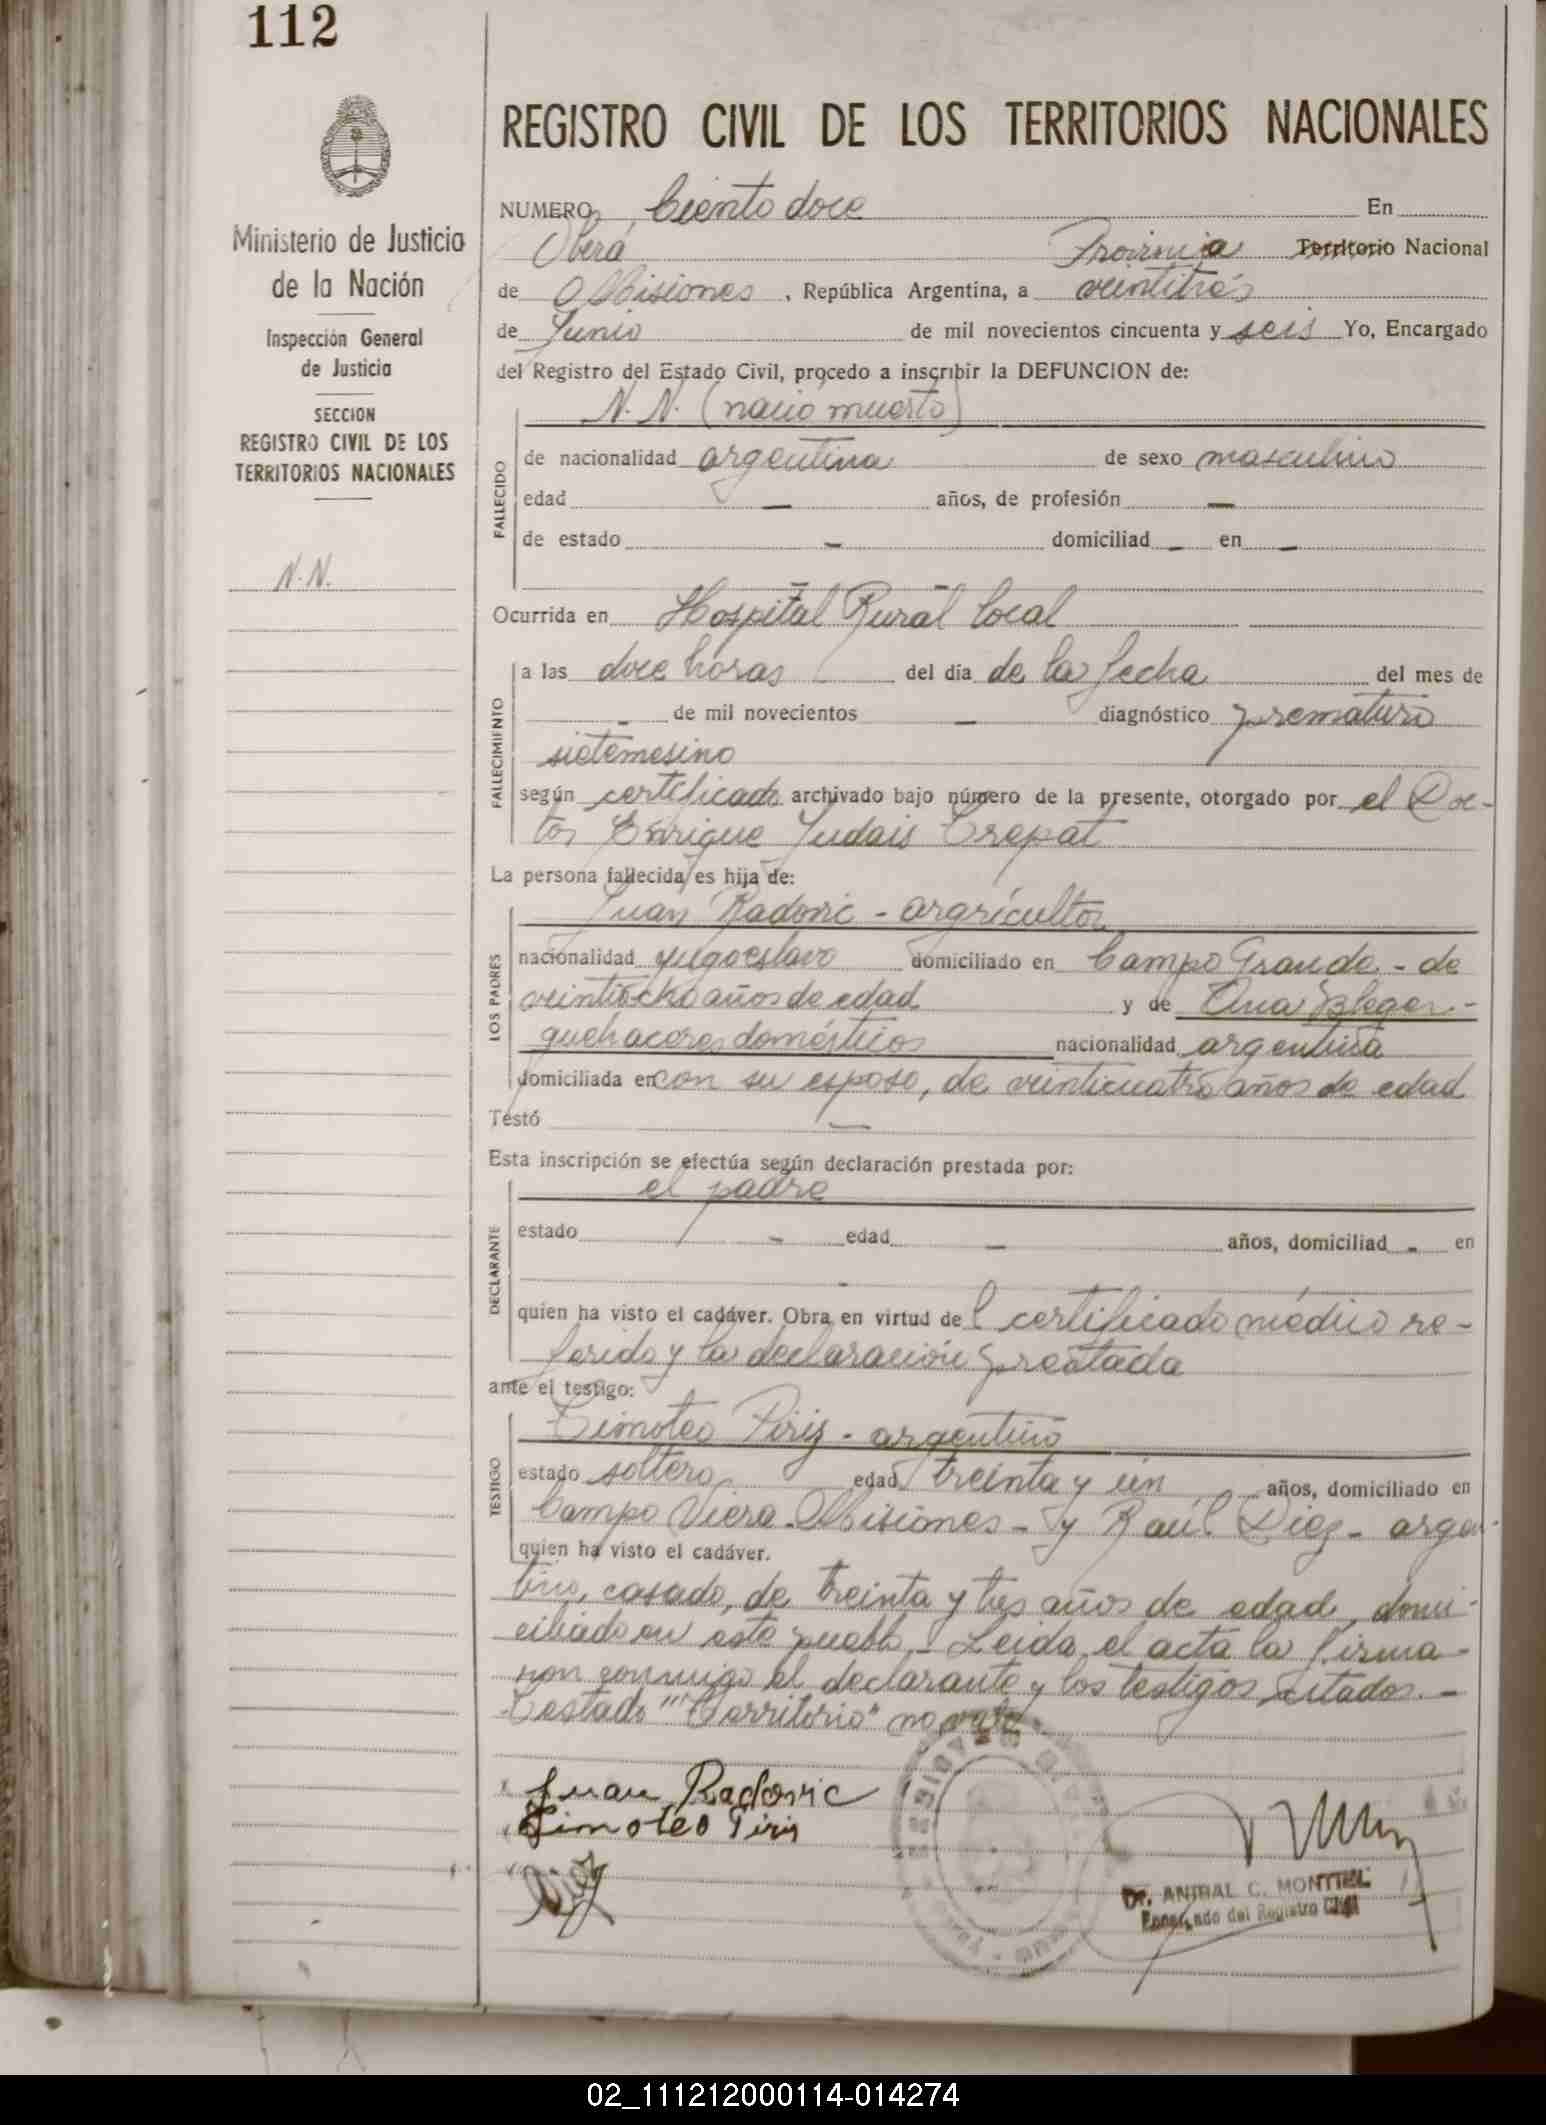 112
REGISTRO CIVIL DE LOS TERRITORIOS NACIONALES
Ministerio de Justicia
de la Nación
Inspección General
de Justicia
SECCION
REGISTRO CIVIL DE LOS
TERRITORIOS NACIONALES
N.N.
NUMERO Ciento doce En
Oberá Provincia Territorio Nacional
de Misiones , República Argentina, a veintitrés
de Junio de mil novecientos cincuenta y seis Yo, Encargado
del Registro del Estado Civil, procedo a inscribir la DEFUNCION de:
N. N. (nació muerto)
FALLECIDO
de nacionalidad argentina de sexo masculino
edad — años, de profesión —
de estado - domiciliad - en -
Ocurrida en Hospital Rural local
FALLECIMIENTO
a las doce horas del día de la fecha del mes de
- de mil novecientos - diagnóstico prematuro
sietemesino
según certificado archivado bajo número de la presente, otorgado por el Doc-
tor Enrique Judais Crepat
La persona fallecida es hija de:
LOS PADRES
Juan Radovic - argricultor
nacionalidad yugoeslavo domiciliado en Campo Grande - de
veintiocho años de edad y de Ana Bleger -
quehaceres domésticos nacionalidad argentina
domiciliada en con su esposo, de veinticuatro años de edad
Testó —
Esta inscripción se efectúa según declaración prestada por:
DECLARANTE
el padre
estado - edad - años, domiciliad - en
-
quien ha visto el cadáver. Obra en virtud de l certificado médico re-
ferido y la declaración prestada
ante el testigo:
TESTIGO
Timoteo Piriz - argentino
estado soltero edad treinta y un años, domiciliado en
Campo Viera - Misiones - y Raúl Diez - argen-
quien ha visto el cadáver.
tino, casado, de treinta y tres años de edad, domi-
ciliado en este pueblo.- Leida el acta la firma-
ron conmigo el declarante y los testigos citados.-
Testado "Territorio" no vale.
Juan Radovic
Timoteo Piriz
Diez
Dr. ANIBAL C. MONTIEL
Encargado del Registro Civil
02_111212000114-014274